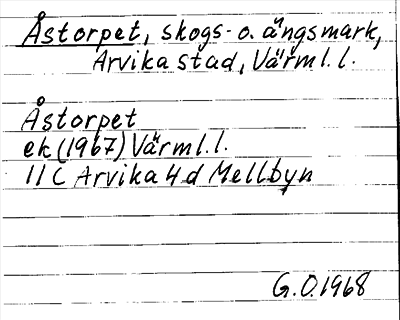 Åstorpet, skogs- o. ängsmark,
Arvika stad, Värml. l.
Åstorpet
ek (1967) Värml. l.
11 C Arvika 4 d Mellbyn
G.O. 1968